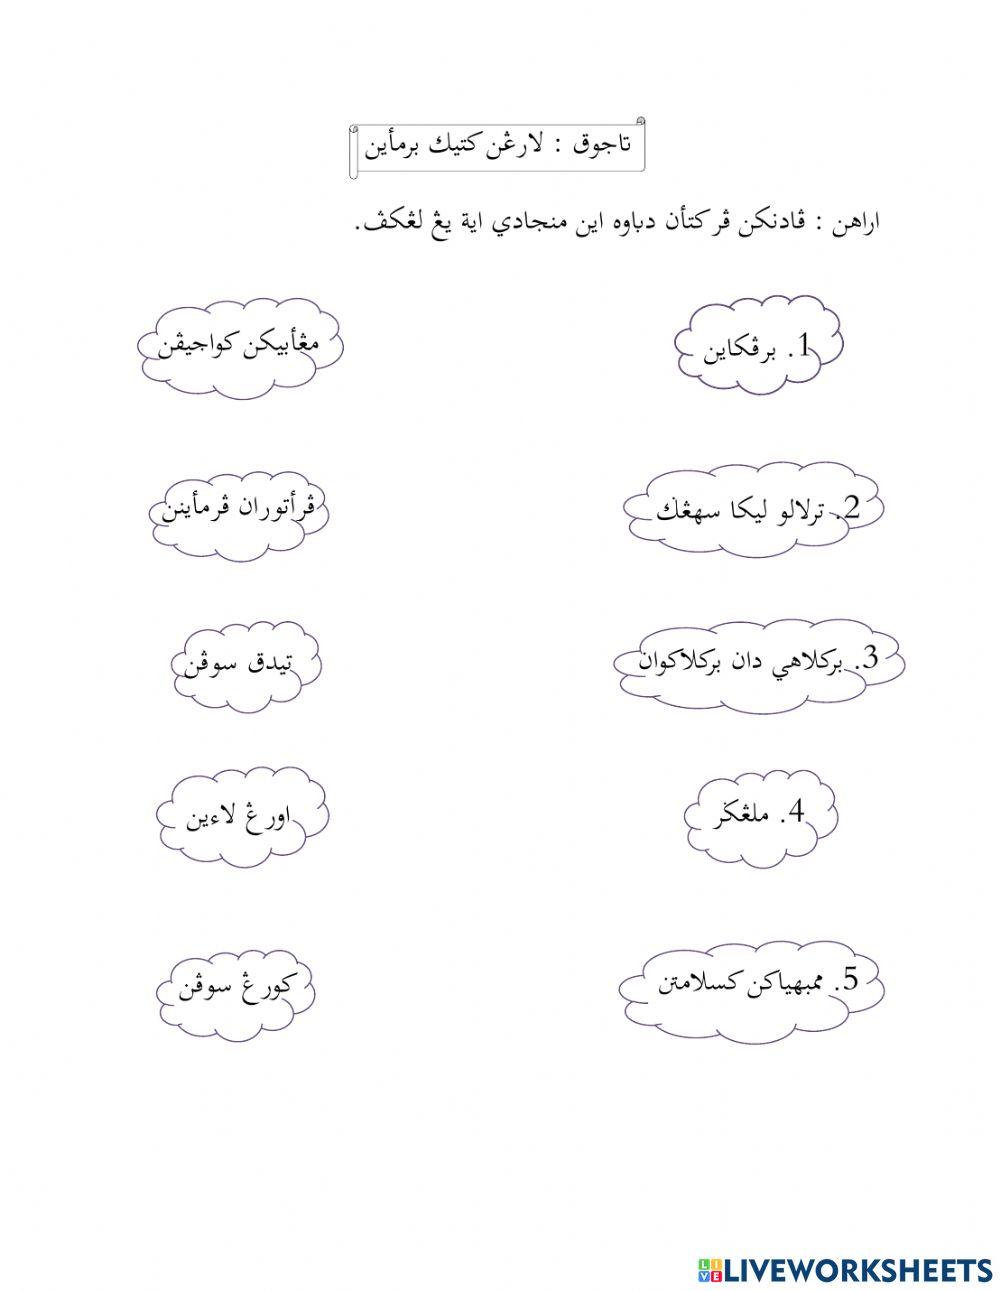 تاجوق : لارڠن كتيك برمأين
اراهن : ڤادنكن ڤركتأن دباوه اين منجادي اية يڠ لڠكڤ.
1. برڤكاين
مڠأبيكن كواجيڤن
2. ترلالو ليكا سهڠݢ
ڤرأتوران ڤرمأينن
3. بركلاهي دان بركلاكوان
تيدق سوڤن
4. ملڠݢر
اورڠ لاءين
5. ممبهياكن كسلامتن
كورڠ سوڤن
LIVEWORKSHEETS